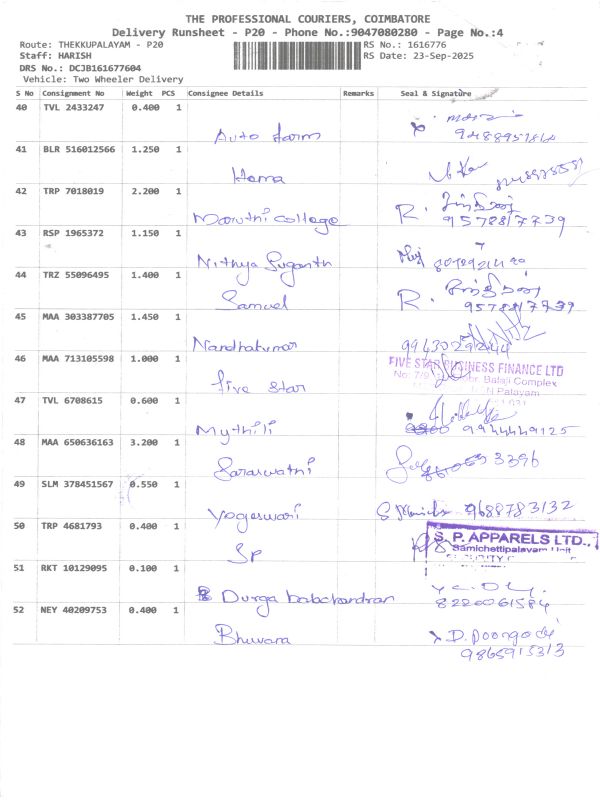 THE PROFESSIONAL COURIERS, COIMBATORE
Delivery Runsheet - P20 - Phone No.:9047080280 - Page No.:4
Route: THEKKUPALAYAM - P20
RS No.: 1616776
Staff: HARISH
RS Date: 23-Sep-2025
DRS No.: DCJB161677604
Vehicle: Two Wheeler Delivery
S No Consignment No Weight PCS Consignee Details Remarks Seal & Signature
40 TVL 2433247 0.400 1
Auto farm
41 BLR 516012566 1.250 1
Hema
42 TRP 7018019 2.200 1
Maruthi College R.
9578817739
43 RSP 1965372 1.150 1
Nithya Suganth
44 TRZ 55096495 1.400 1
Samuel R.
9578817739
45 MAA 303387705 1.450 1
Nandhakumar
46 MAA 713105598 1.000 1
five star
FIVE STAR BUSINESS FINANCE LTD
Balaji Complex
Palayam
47 TVL 6708615 0.600 1
Mythili 9944449125
48 MAA 650636163 3.200 1
Saraswathi 3396
49 SLM 378451567 0.550 1
Yogeswari 9688783132
50 TRP 4681793 0.400 1
SP
S. P. APPARELS LTD.,
Samichettipalayam Unit
51 RKT 10129095 0.100 1
Durga balachandran
8220061584
52 NEY 40209753 0.400 1
Bhuvana D. Poongodi
9865915313